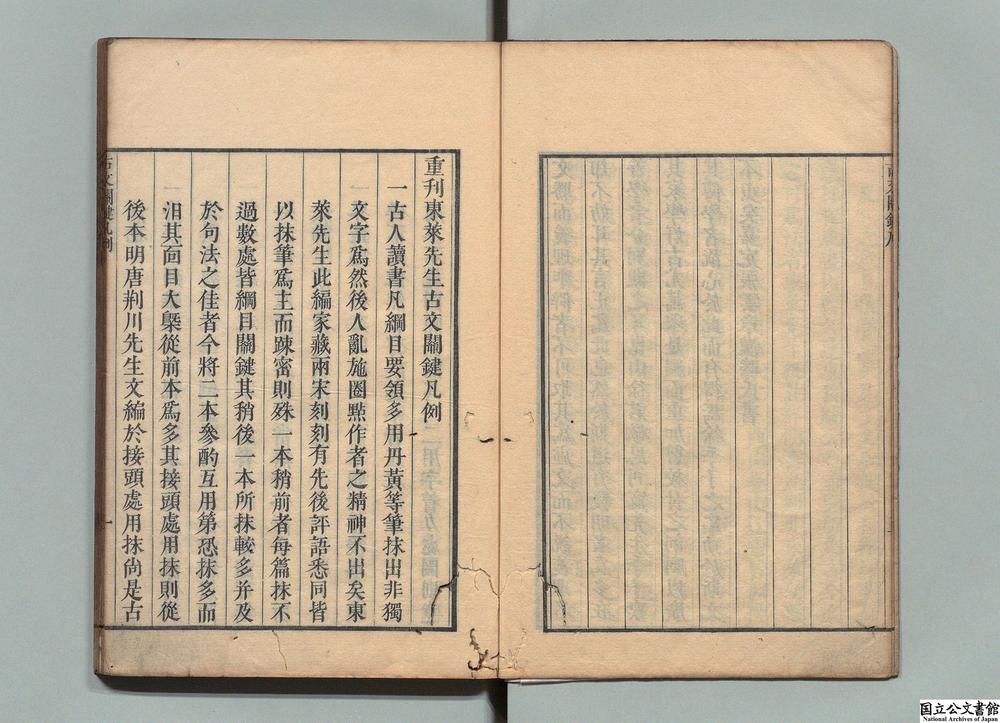 重刊東萊先生古文關鍵凡例
一古人讀書凡綱目要領多用丹黃等筆抹出非獨
文字爲然後人亂施圈點作者之精神不出矣東
萊先生此編家藏兩宋刻刻有先後評語悉同皆
以抹筆爲主而疎密則殊一本稍前者每篇抹不
過數處皆綱目關鍵其稍後一本所抹較多并及
於句法之佳者今將二本參酌互用第恐抹多而
汨其面目大槩從前本爲多其接頭處用抹則從
後本明唐荆川先生文編於接頭處用抹尙是古
古文關鍵凡例
一
国立公文書館
National Archives of Japan